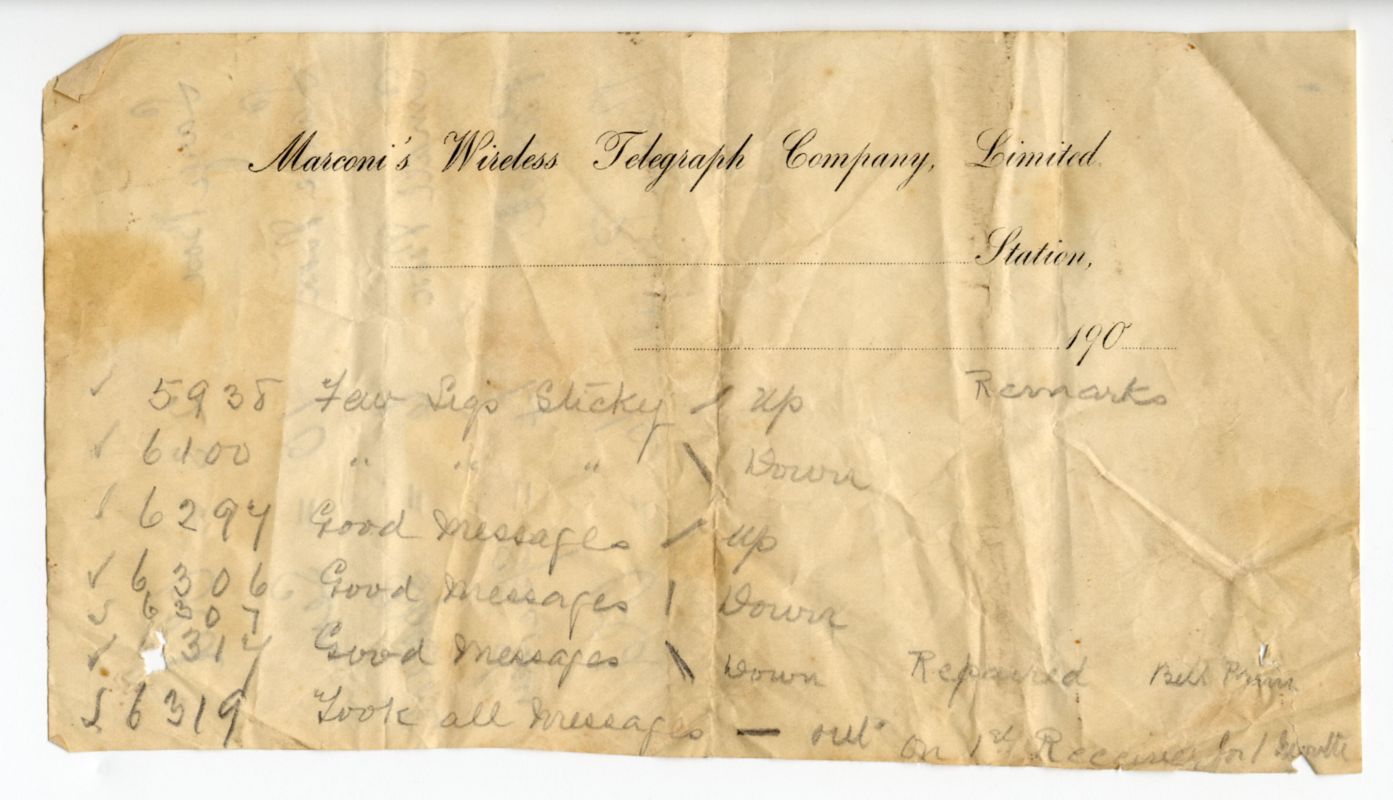 Marconi's Wireless Telegraph Company, Limited.
Station,
190
Remarks
✓ 5938 Few Sigs Sticky / Up
✓ 6100 " " " \ Down
✓ 6294 Good Messages / Up
✓ 6306 Good Messages | Down
✓ 6307
✓ 314 Good Messages \ Down Repaired Bell
✓ 6319 Took all Messages — out on 1st Receiver for 1